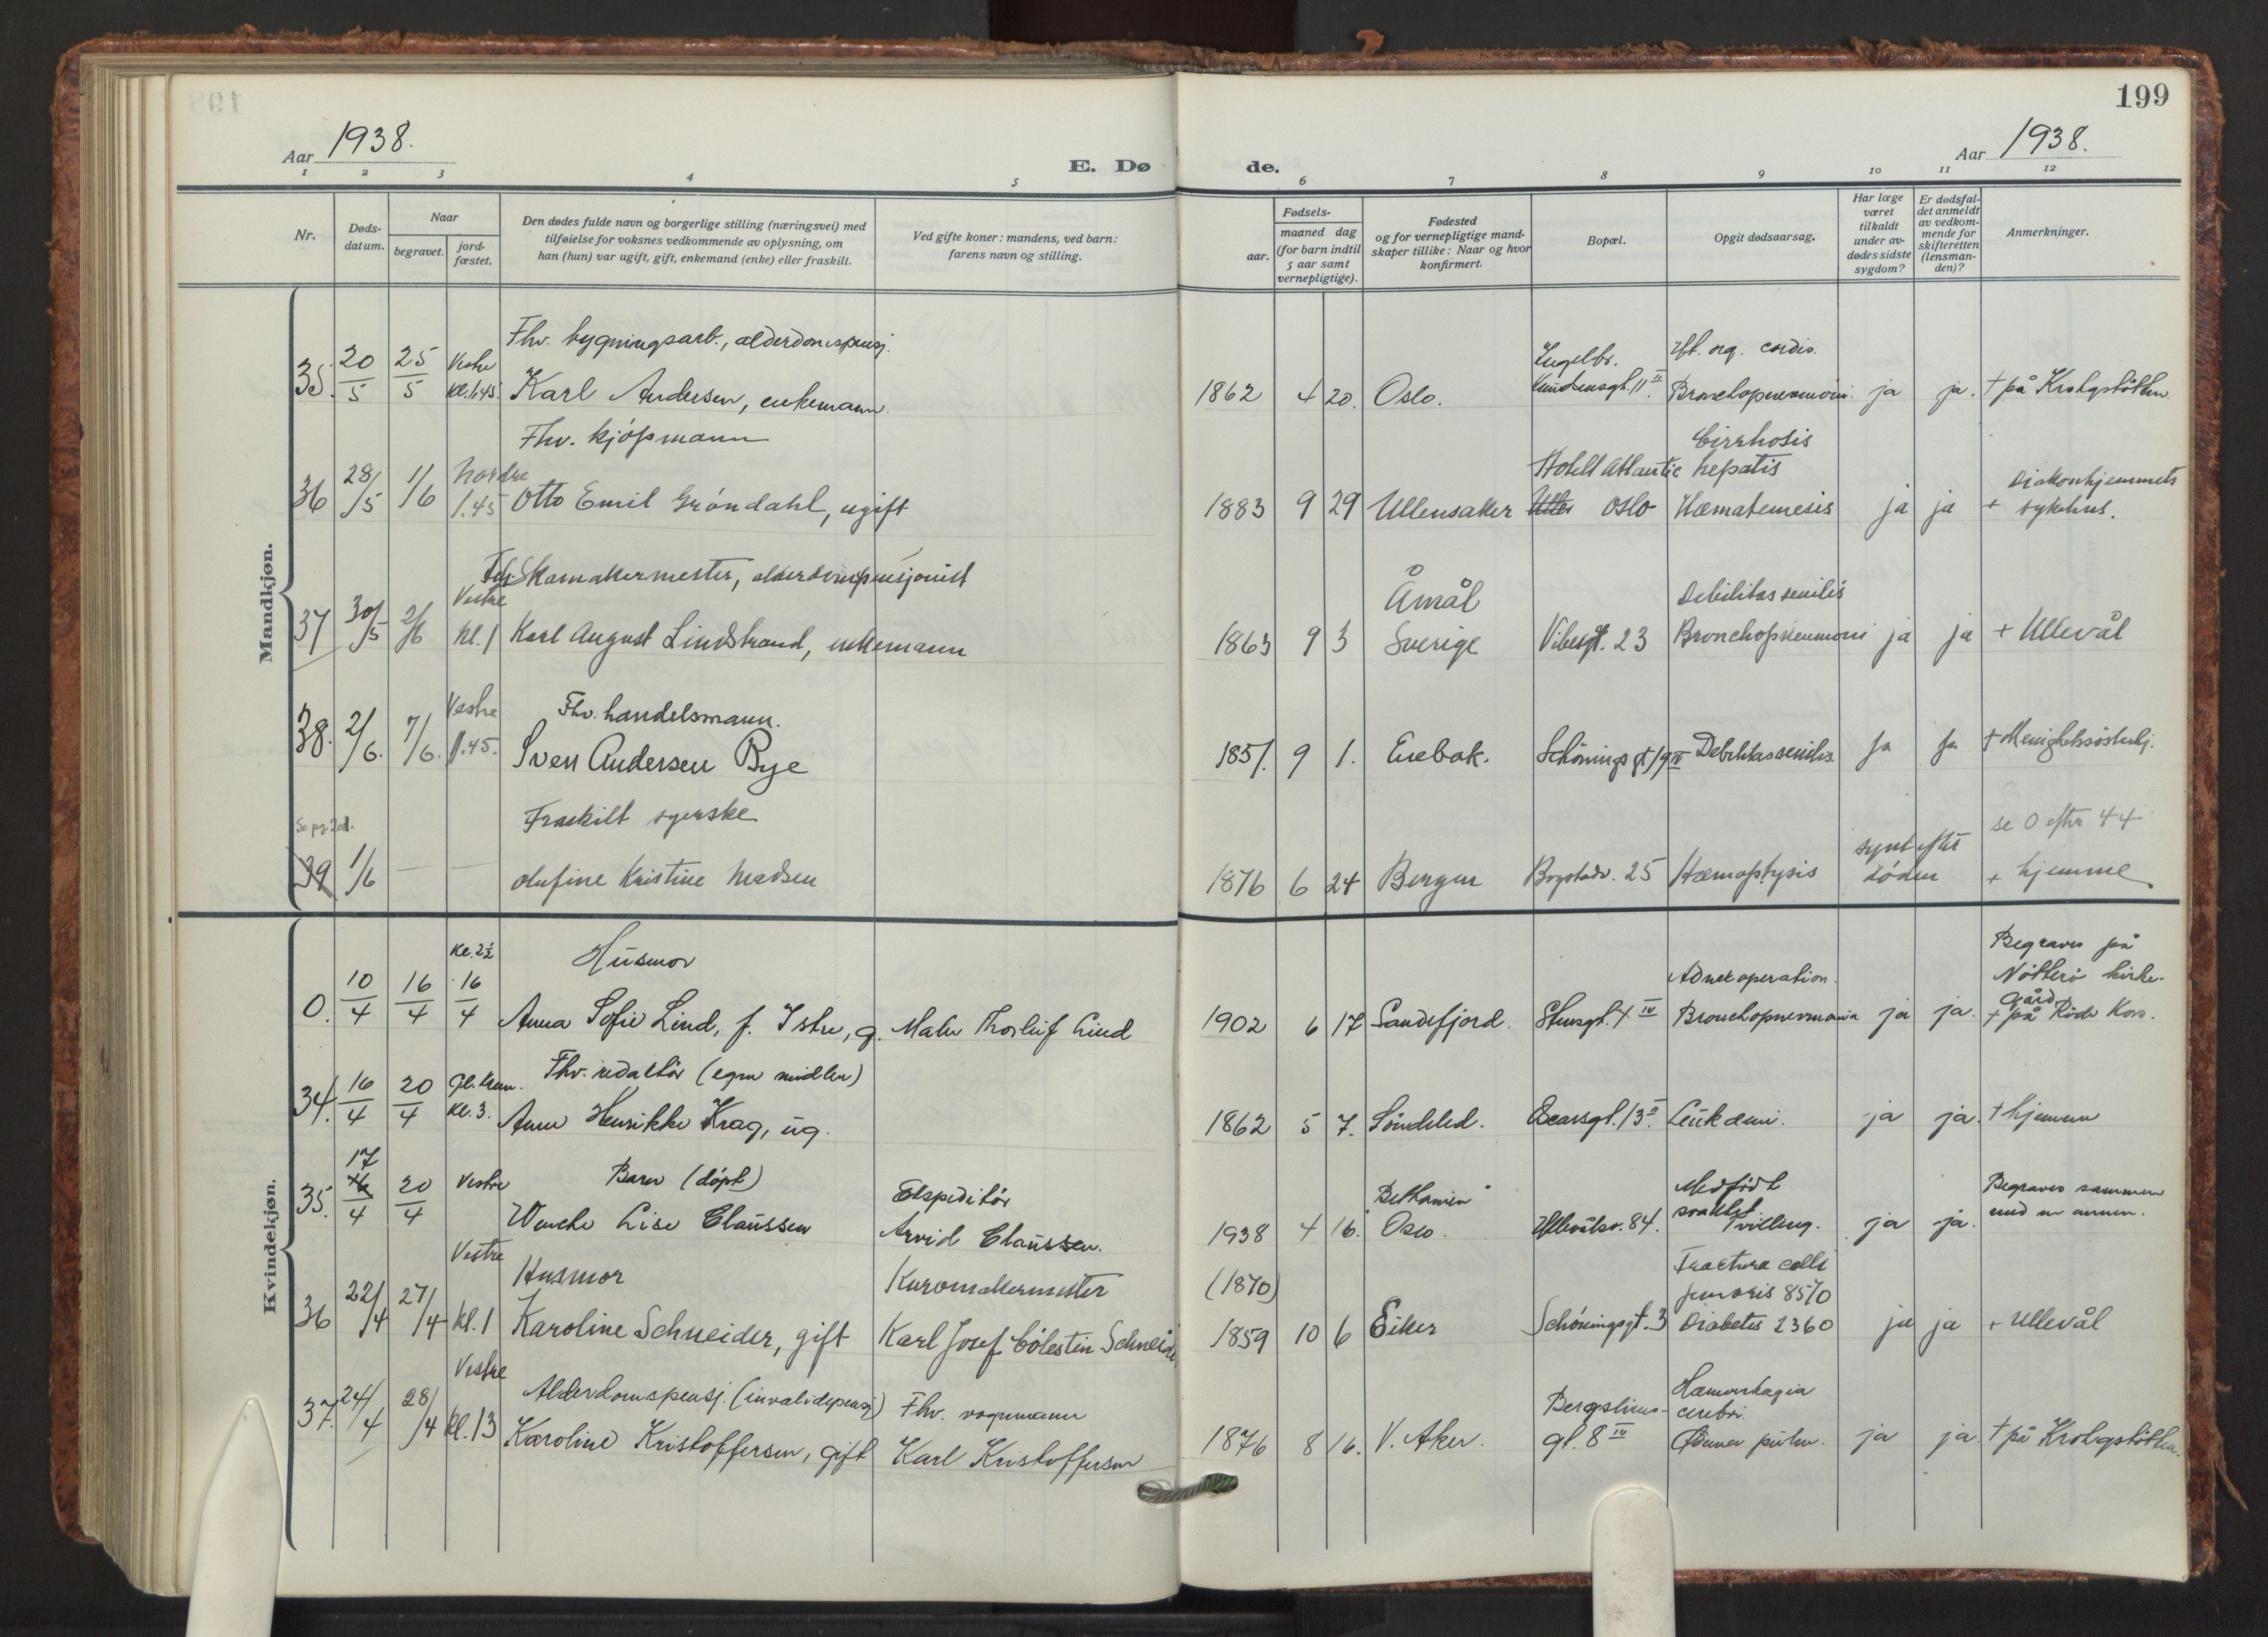 199
Aar 1938.
E. Dø
de.
Aar 1938.
1 2 3 4 5 6 7 8 9 10 11 12
Nr.
Døds-
datum.
Naar
begravet.
jord-
fæstet.
Den dødes fulde navn og borgerlige stilling (næringsvei) med
tilføielse for voksnes vedkommende av oplysning, om
han (hun) var ugift, gift, enkemand (enke) eller fraskilt.
Ved gifte koner: mandens, ved barn:
farens navn og stilling.
Fødsels-
aar.
maaned dag
(for barn indtil
5 aar samt
vernepligtige).
Fødested
og for vernepligtige mand-
skaper tillike: Naar og hvor
konfirmert.
Bopæl.
Opgit dødsaarsag.
Har læge
været
tilkaldt
under av-
dødes sidste
sygdom?
Er dødsfal-
det anmeldt
av vedkom-
mende for
skifteretten
(lensman-
den)?
Anmerkninger.
Mandkjøn.
Fhv. bygningsarb., alderdomspensj. hft. org. cordis.
35. 20/5 25/5 Vestre kl. 1.45. Karl Andersen, enkemann. 1862 4 20. Oslo. 11 II. Bronchopneumoni. ja ja. + på Krohgstøtten.
Fhv. kjøpmann Hotell Atlantic Cirrhosis hepatis Diakonhjemmets
36 28/5 1/6 Nordre 1.45 Otto Emil Grøndahl, ugift 1883 9 29 Ullensaker Oslo Hæmatemesis ja ja + sykehus.
Skomakermester, alderdomspensjonist Åmål Debilitas senilis
37 30/5 2/6 Vestre kl. 1 Karl August Lindstrand, enkemann 1863 9 3 Sverige Vibesgt. 23 Bronchopneumoni ja ja + Ullevål
Fhv. handelsmann.
38. 2/6. 7/6. Vestre 1.45. Sven Andersen Bye 1851. 9 1. Enebak. Schønings gt 19 IV Debilitas senilis. Ja Ja + Menighetssøsterhj.
Fraskilt syerske se 0 efter 44
39 1/6 — — Olufine Kristine Madsen 1876 6 24 Bergen Bogstadv. 25 Hæmoptysis synt efter døden + hjemme
Kvindekjøn.
kl. 2½ Husmor Adnexoperation. Begraves på Nøtterø kirke-
gård
0. 10/4 16/4 16/4 Anna Sofie Lind, f. Istre, g. Maler Thorleif Lind 1902 6 17 Sandefjord. Stensgt. 4 IV Bronchopneumonia ja ja. + på Røde Kors.
Fhv. redaktør (egne midler)
34. 16/4 20/4 Gl. krem. kl. 3. Anne Henrikke Krag, ug. 1862 5 7. Søndeled. Oscarsgt. 13 II. Leukæmi. ja ja. + hjemme
Barn (døpt) Ekspeditør "Betanien" Medfødt svakhet Begraves sammen
med en annen.
35. 17/4 20/4 Vestre Wenche Lise Claussen Arvid Claussen. 1938 4 16. Oslo. Ullevålsv. 84. Tvilling. ja ja.
Husmor Kurvmakermester (1870) Fractura colli femoris 8570
36 22/4 27/4 Vestre kl. 1 Karoline Schneider, gift Karl Josef Cölestin Schneider 1859 10 6 Eiker Schøningsgt. 3 Diabetes 2360 ja ja + Ullevål
Alderdomspensj. (invalidepensj) Fhv. vognmann Bergsliens- Hæmorrhagia cerebri.
37. 24/4 28/4 Vestre kl. 13 Karoline Kristoffersen, gift Karl Kristoffersen 1876 8 16. V. Aker. gt. 8 IV Ødema pulm. ja ja. + på Krohgstøtten.